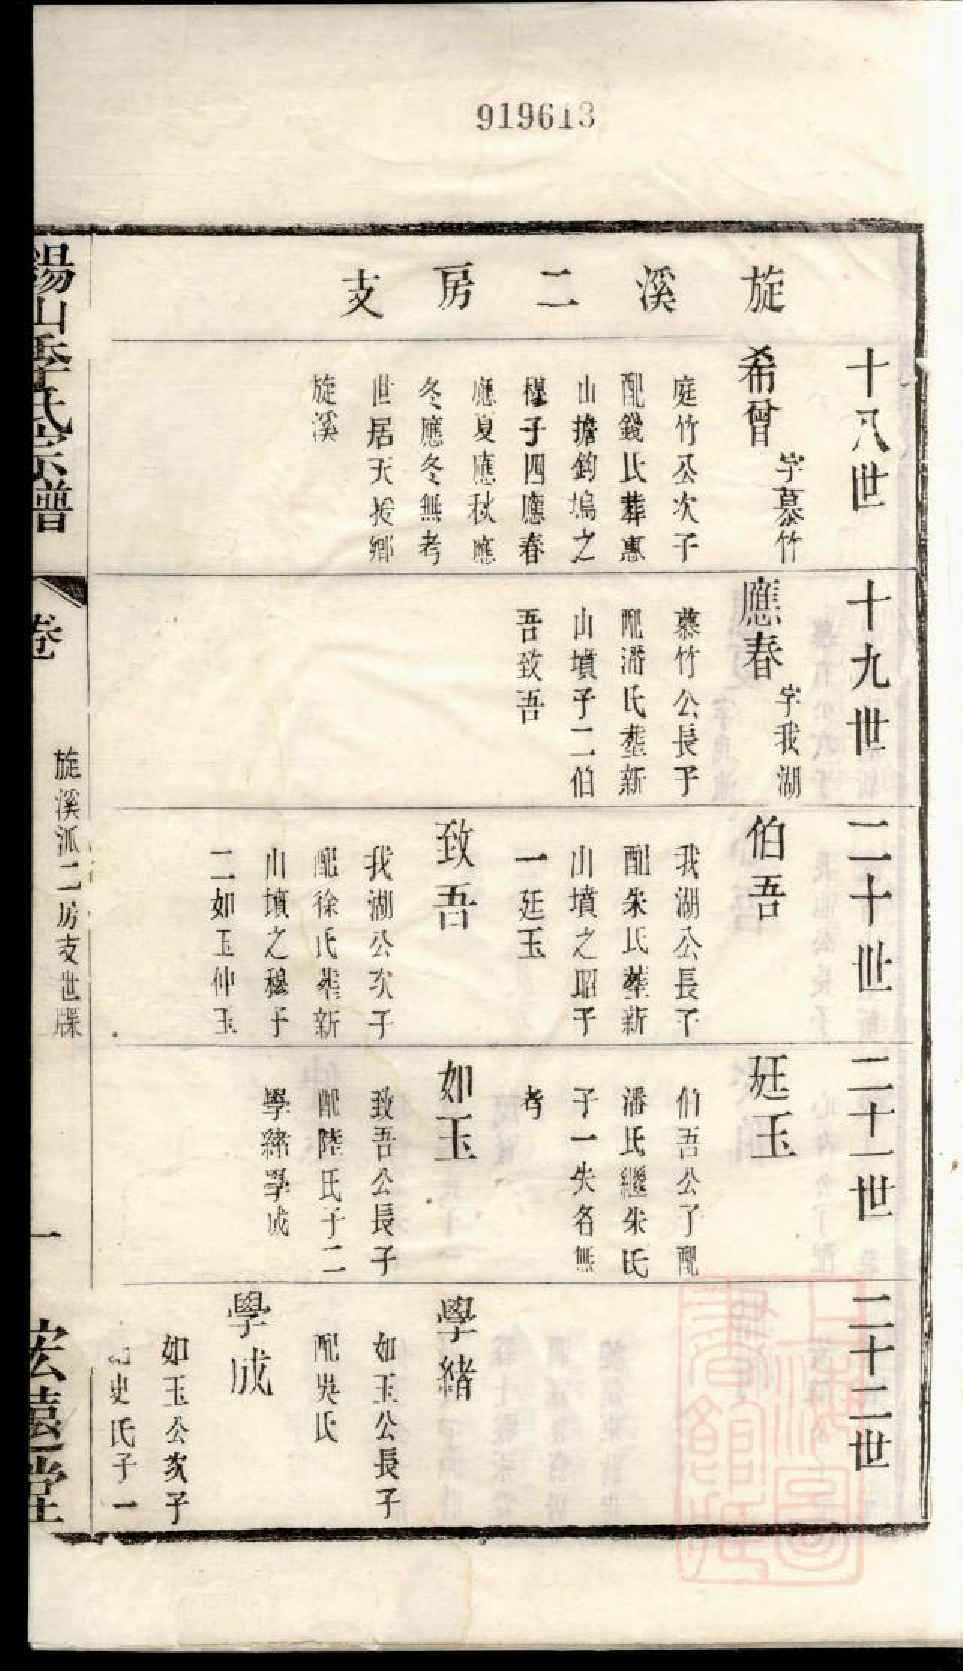 919613
旋溪二房支
十八世
希曾 字慕竹
庭竹公次子
配錢氏葬惠
山擔鈎塢之
穆子四應春
應夏應秋應
冬應冬無考
世居天授鄉
旋溪
十九世
應春 字我湖
慕竹公長子
配潘氏葬新
山墳子二伯
吾致吾
二十世
伯吾
我湖公長子
配朱氏葬新
山墳之昭子
一廷玉
致吾
我湖公次子
配徐氏葬新
山墳之穆子
二如玉仲玉
二十一世
廷玉
伯吾公子配
潘氏繼朱氏
子一失名無
考
如玉
致吾公長子
配陸氏子二
學緒學成
二十二世
學緒
如玉公長子
配吳氏
學成
如玉公次子
配史氏子一
錫山季氏宗譜
卷
旋溪派二房支世牒
一
宏遠堂
上海圖書館藏